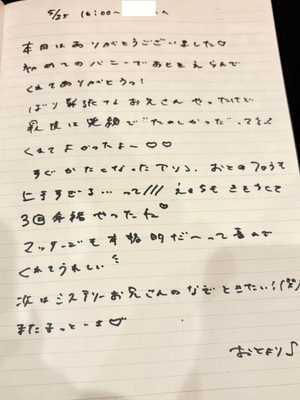 5/25 16:00~
本日はありがとうございました♡
初めてのバニーでおとをえらんで
くれてありがとうっ!
ばり緊張したお兄さんやったけど
最後は笑顔で"たのしかった"ってそう
くれてよかったよ~♡♡
すぐかたくなったてりっ、おとのフロうも
上手すぎる…って/// もきもちくて
3回 やったね♡
マッサージも本格的だ~って喜んで
くれてうれしい
次はミステリーお兄さんのなぞときたい!(笑)
またまっとーよ♡
おとより♪